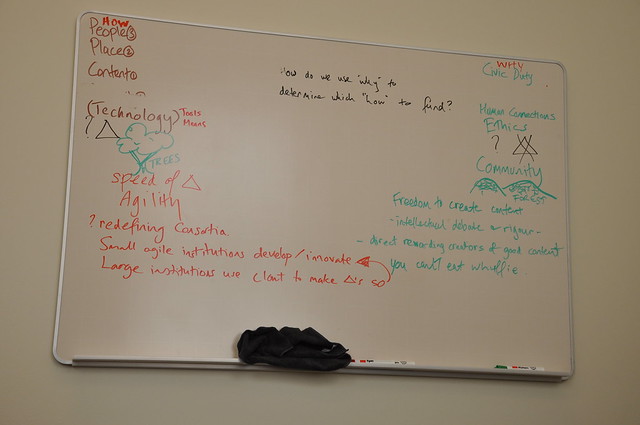 How
People③
Place②
Content①
(Technology) Tools
Means
? △
TREES
speed of △
Agility
? redefining Consortia
Small agile institutions develop/innovate
Large institutions use Clout to make △'s so
How do we use "why" to
determine which "how" to fund?
WHY
Civic Duty
Human Connections
Ethics
?
Community
FOREST
Freedom to create content
- intellectual debate & rigour -
- direct rewarding creators of good content
you can't eat whuffie